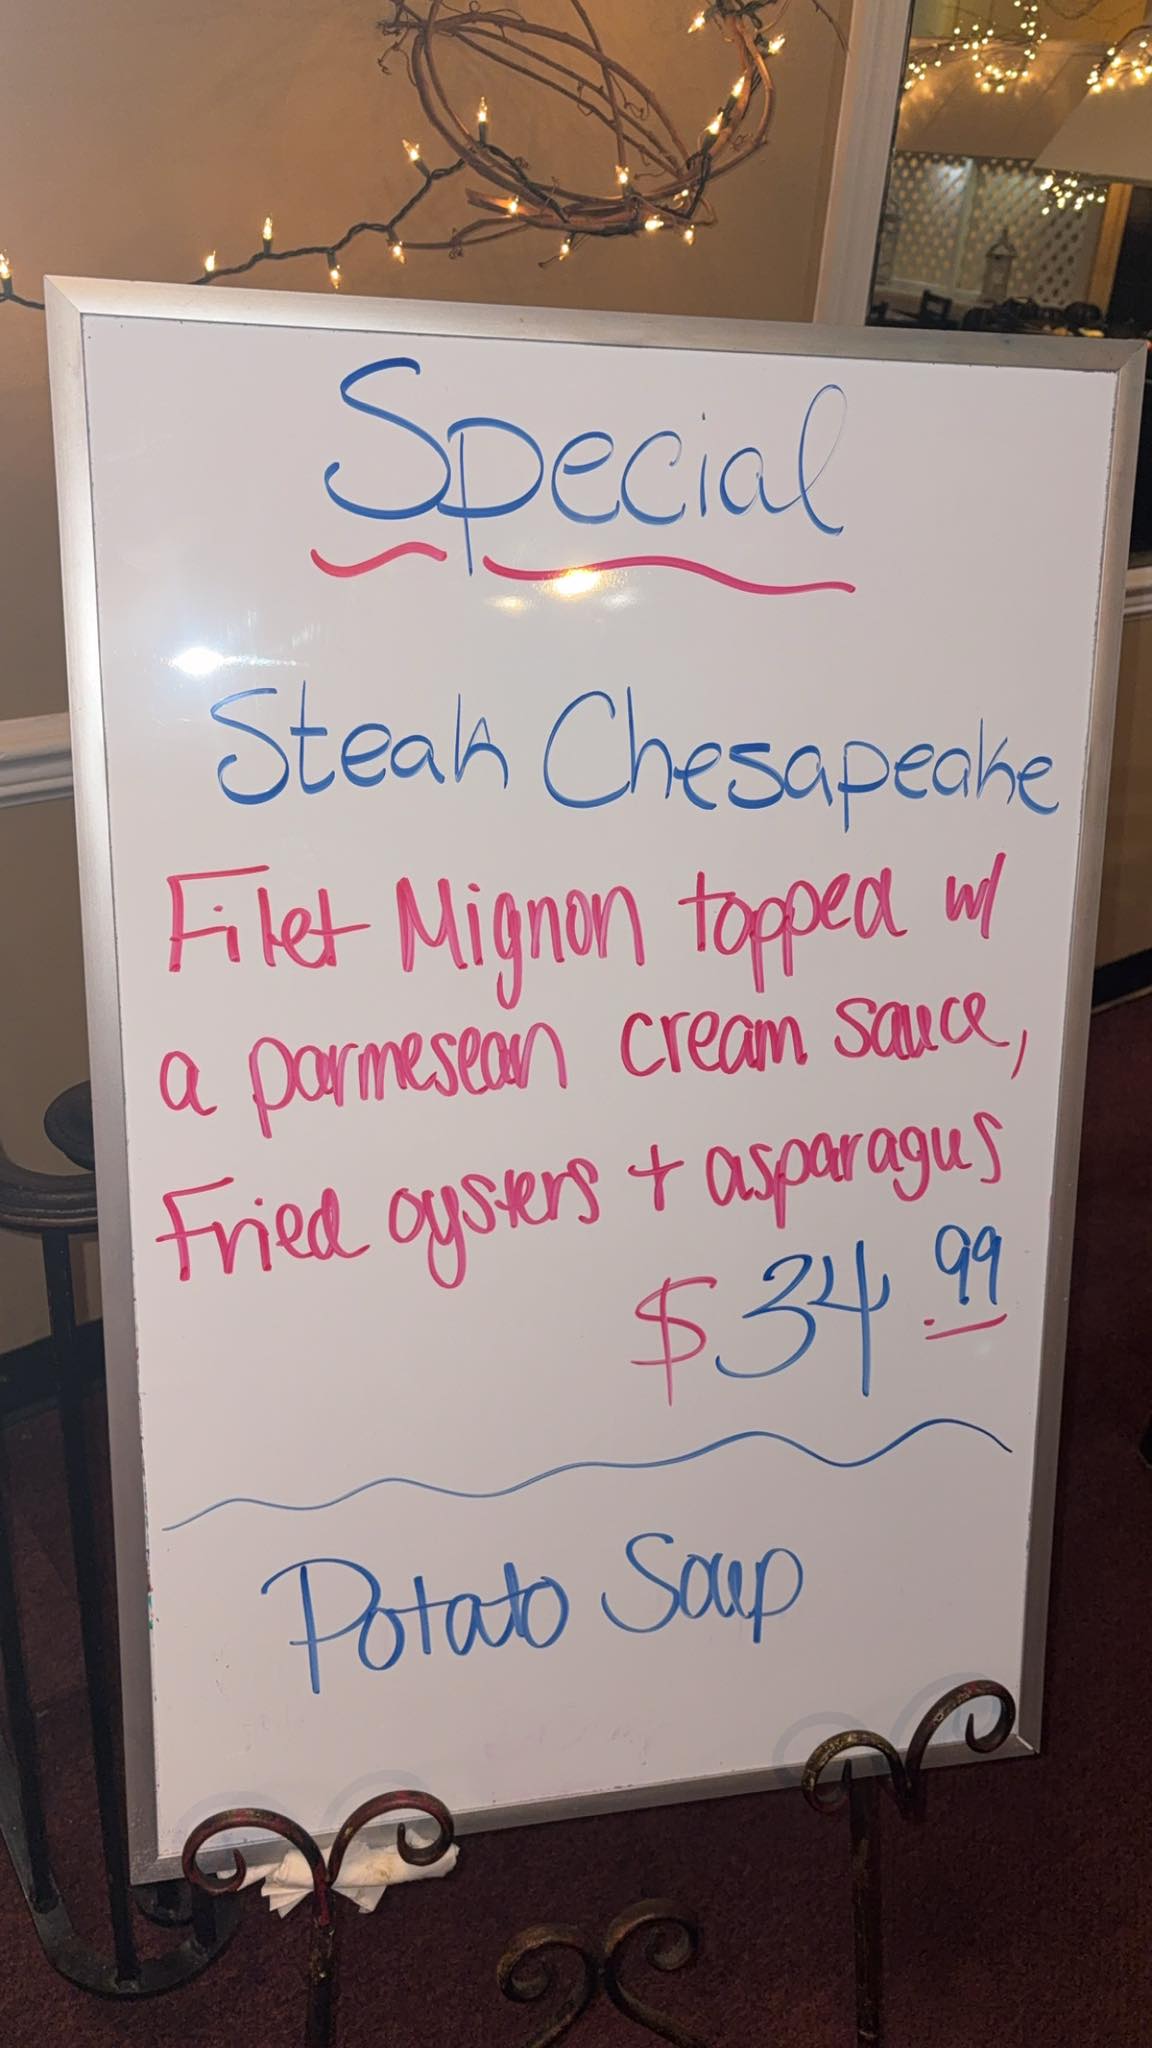 Special
Steak Chesapeake
Filet Mignon topped w/
a parmesean cream sauce,
Fried oysters + asparagus
$34.99
Potato Soup